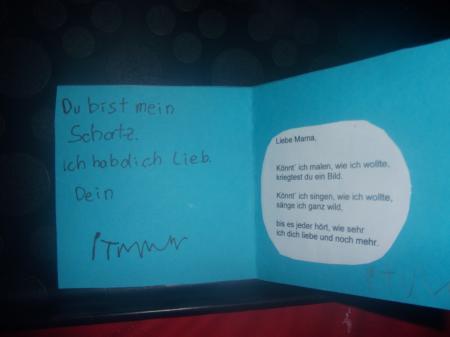 Du bist mein
Schatz.
ich hab dich Lieb.
Dein
Liebe Mama,
Könnt´ ich malen, wie ich wollte,
kriegtest du ein Bild.
Könnt´ ich singen, wie ich wollte,
sänge ich ganz wild,
bis es jeder hört, wie sehr
ich dich liebe und noch mehr.